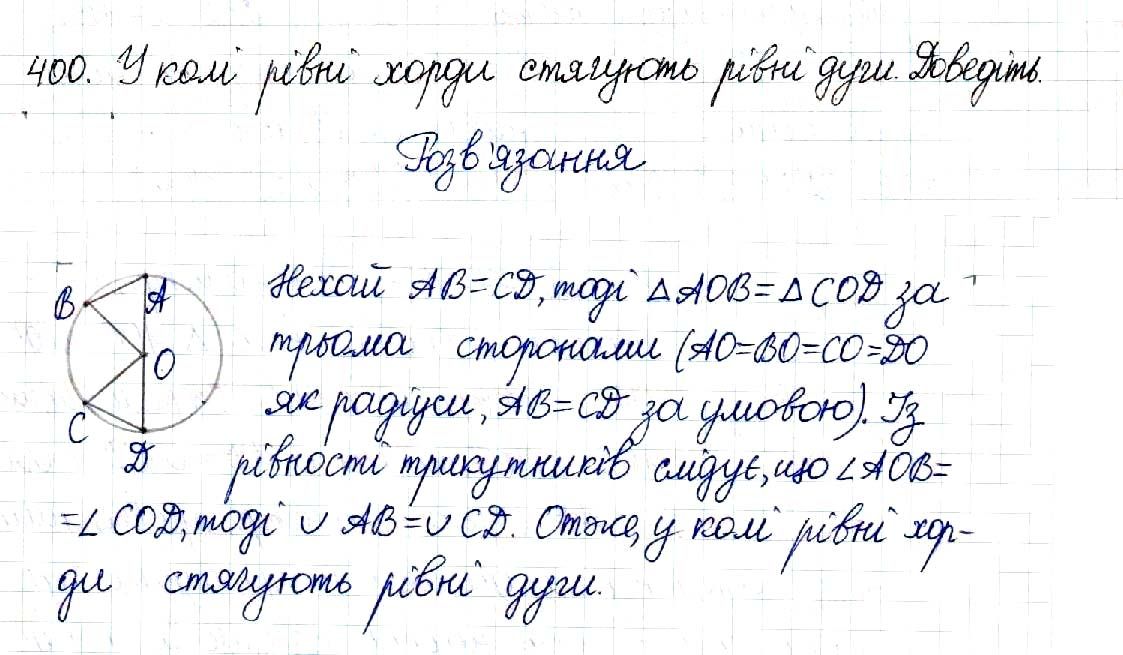 400. У колі рівні хорди стягують рівні дуги. Доведіть.
Розв'язання
B
A
O
C
D
Нехай AB=CD, тоді △AOB=△COD за
трьома сторонами (AO=BO=CO=DO
як радіуси, AB=CD за умовою). Із
рівності трикутників слідує, що ∠AOB=
=∠COD, тоді ∪AB=∪CD. Отже, у колі рівні хор-
ди стягують рівні дуги.